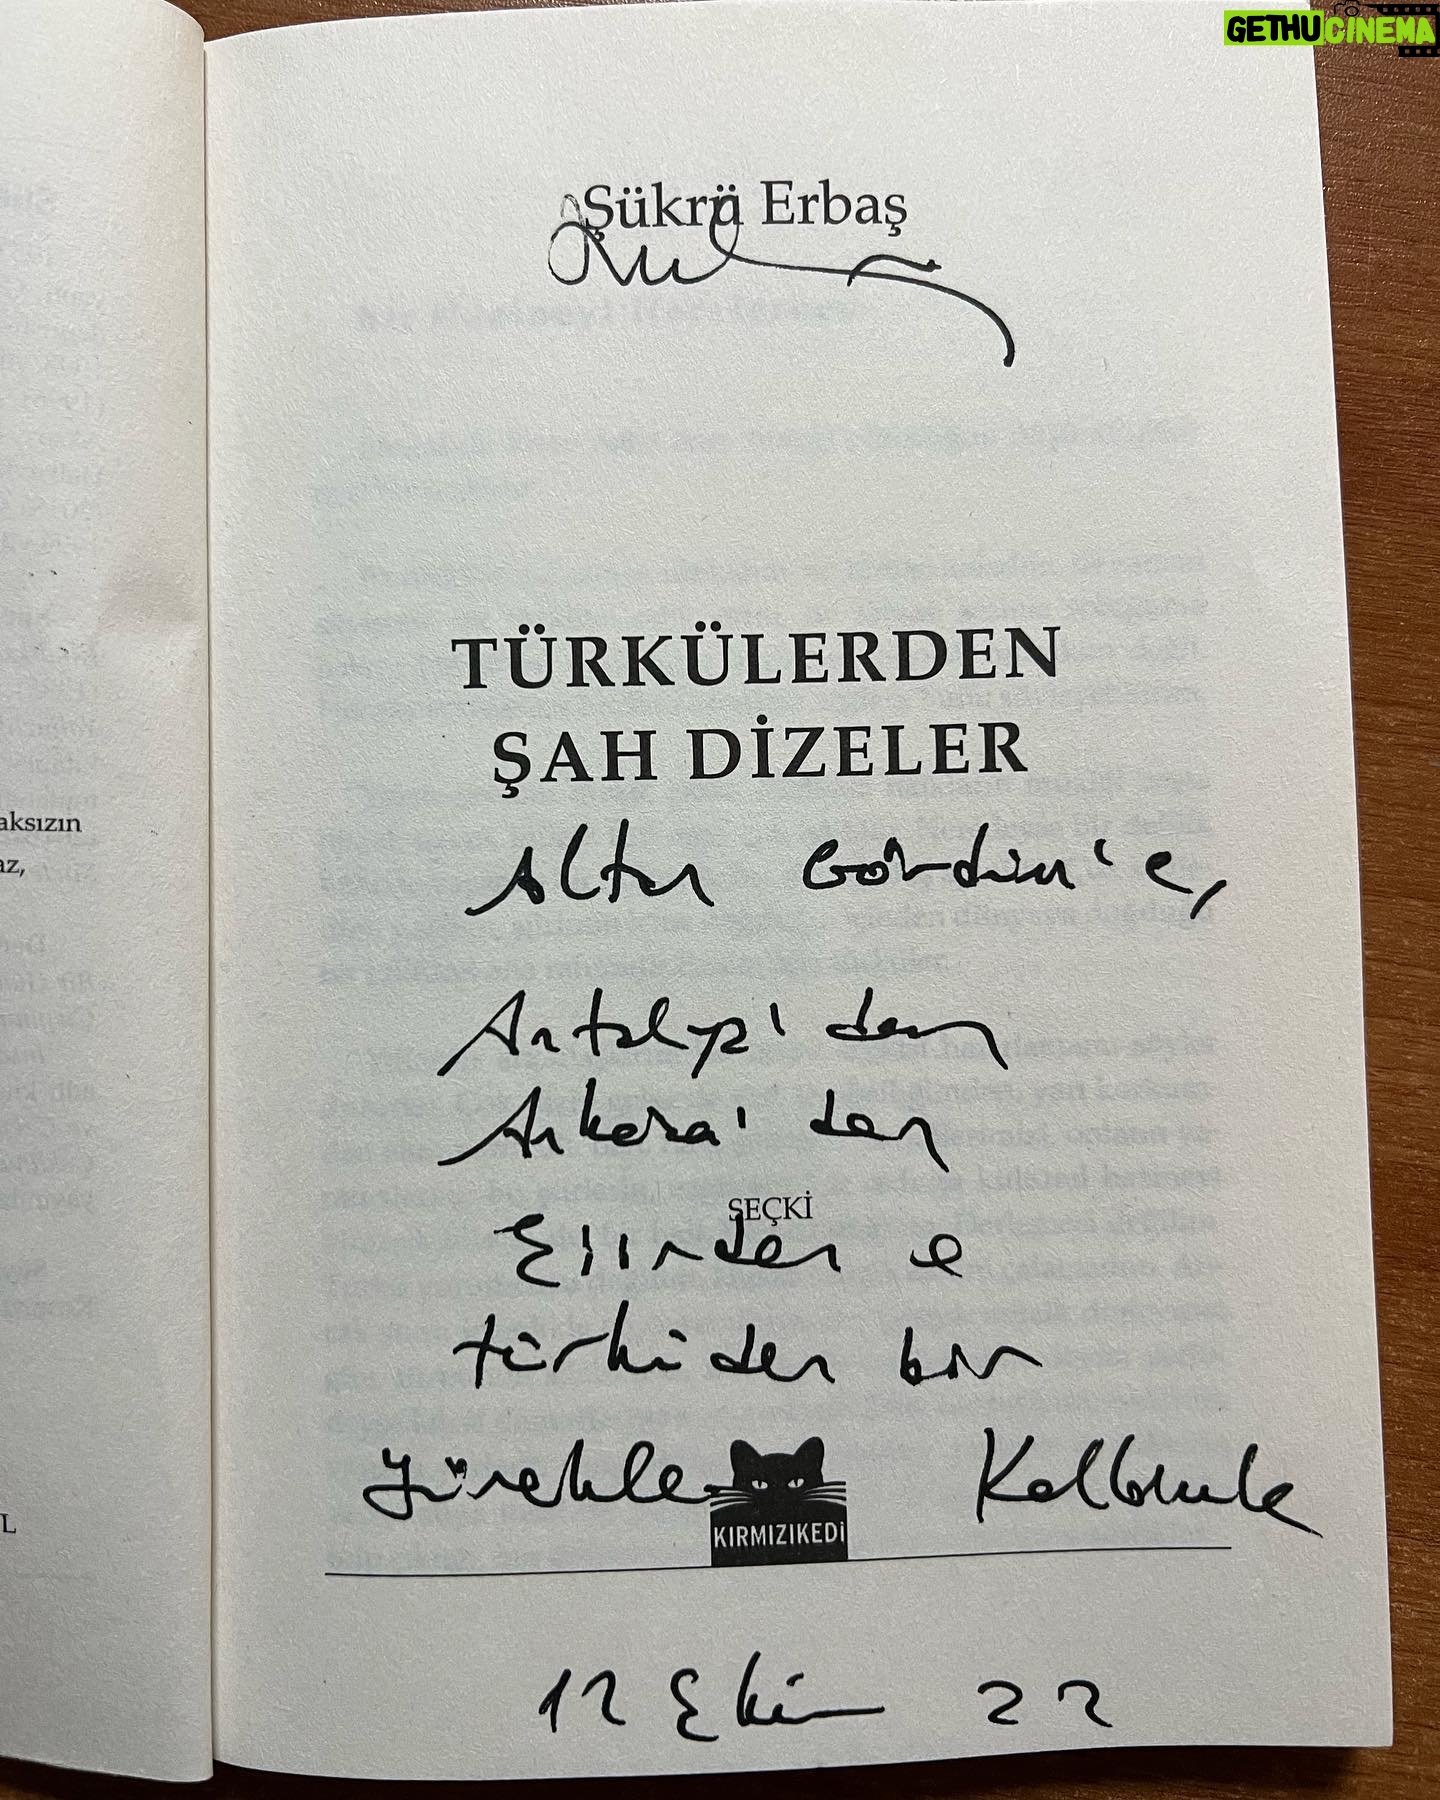 GETHUCINEMA
Şükrü Erbaş
TÜRKÜLERDEN
ŞAH DİZELER
Altan Gördüm'e,
Antalya'dan
Ankara'dan
SEÇKİ
Şiirden e
türküden bir
yürekle Kalbimle
KIRMIZIKEDİ
12 Ekim 22
aksızın
az,
L